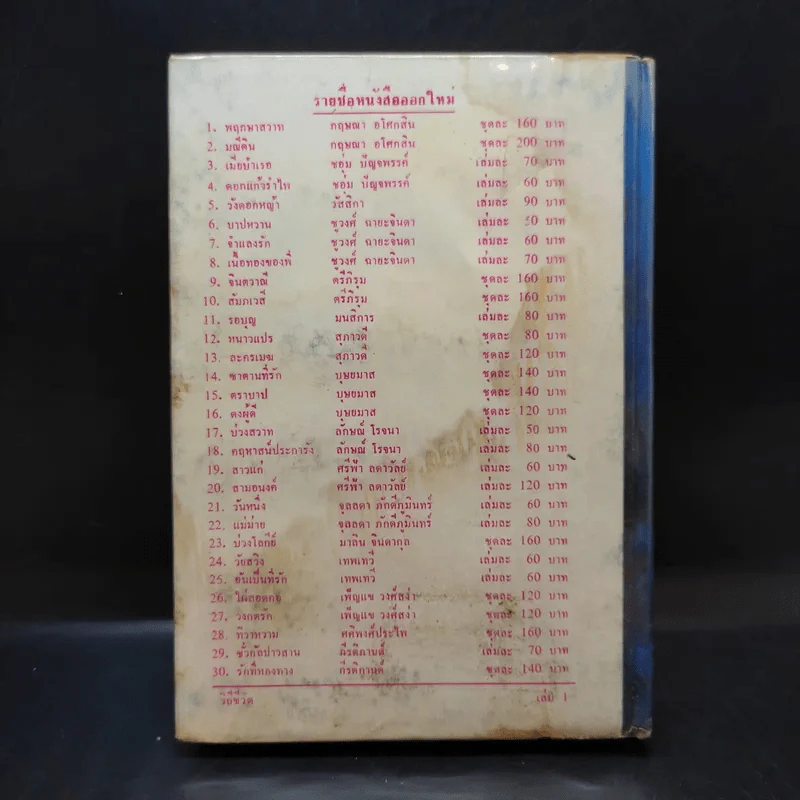 รายชื่อหนังสือออกใหม่
1. พฤกษาสวาท กฤษณา อโศกสิน ชุดละ 160 บาท
2. มณีดิน กฤษณา อโศกสิน ชุดละ 200 บาท
3. เมียบำเรอ ชอุ่ม ปัญจพรรค์ เล่มละ 70 บาท
4. ดอกแก้วรำไพ ชอุ่ม ปัญจพรรค์ เล่มละ 60 บาท
5. วังดอกหญ้า วัสสิกา เล่มละ 90 บาท
6. บาปหวาน ชูวงศ์ ฉายะจินดา เล่มละ 50 บาท
7. จำแลงรัก ชูวงศ์ ฉายะจินดา เล่มละ 60 บาท
8. เนื้อทองของพี่ ชูวงศ์ ฉายะจินดา เล่มละ 70 บาท
9. จินตวาณี ตรีภิรุม ชุดละ 160 บาท
10. สัมภเวสี ตรีภิรุม ชุดละ 160 บาท
11. รอบุญ มนสิการ เล่มละ 80 บาท
12. หนาวแปร สุภาวดี ชุดละ 80 บาท
13. ละครเมฆ สุภาวดี ชุดละ 120 บาท
14. ซาตานที่รัก บุษยมาส ชุดละ 140 บาท
15. ตราบาป บุษยมาส ชุดละ 140 บาท
16. ดงผู้ดี บุษยมาส ชุดละ 120 บาท
17. บ่วงสวาท ลักษณ์ โรจนา เล่มละ 50 บาท
18. คฤหาสน์ปะการัง ลักษณ์ โรจนา เล่มละ 80 บาท
19. สาวแก่ ศรีฟ้า ลดาวัลย์ เล่มละ 60 บาท
20. สามอนงค์ ศรีฟ้า ลดาวัลย์ เล่มละ 120 บาท
21. วันหนึ่ง จุลลดา ภักดีภูมินทร์ เล่มละ 60 บาท
22. แม่ม่าย จุลลดา ภักดีภูมินทร์ เล่มละ 80 บาท
23. บ่วงโลกีย์ มาลิน จินดากุล ชุดละ 160 บาท
24. วัยสวิง เทพเทวี เล่มละ 60 บาท
25. อันเป็นที่รัก เทพเทวี เล่มละ 60 บาท
26. ไผ่ลอดกอ เพ็ญแข วงศ์สง่า ชุดละ 120 บาท
27. วงกตรัก เพ็ญแข วงศ์สง่า ชุดละ 120 บาท
28. ทิวาหวาม ศศิพงศ์ประไพ ชุดละ 160 บาท
29. ชั่วกัลปาวสาน กีรติกานต์ เล่มละ 70 บาท
30. รักที่ทองทาง กีรติกานต์ ชุดละ 140 บาท
วิถีชีวิต เล่ม 1